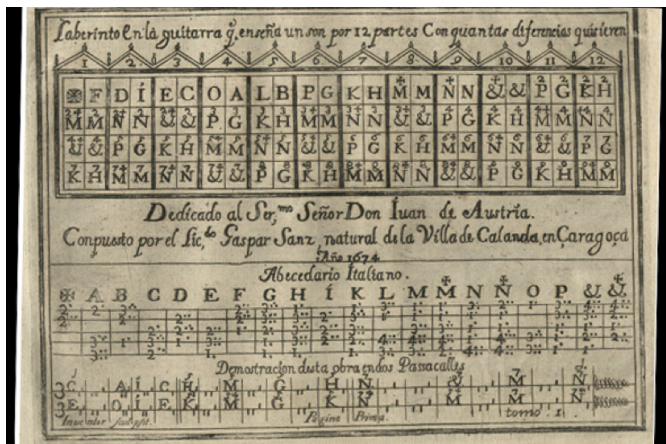 Laberinto En la guitarra q̃ enseña un son por 12 partes Con quantas diferencias quisieren
1 2 3 4 5 6 7 8 9 10 11 12
F D Í E C O A L B P G K H M M N N & & P G K H
M M N N & & P G K H M M N N & & P G K H M M N N
& & P G K H M M N N & & P G K H M M N N & & P G
K H M M N N & & P G K H M M N N & & P G K H M M
Dedicado al Ser.mo Señor Don Íuan de Austria.
Conpuesto por el Lic.do Gaspar Sanz, natural de la Villa de Calanda, en Çaragoça
Año 1674
Abecedario Italiano.
A B C D E F G H Í K L M M N N O P & &
Demostracion desta obra en dos Passacalles
C A Í C H M G H N & M N
E O Í E K M G K N M N
Inventor sculpsit. Pagina Prima. tomo 1.